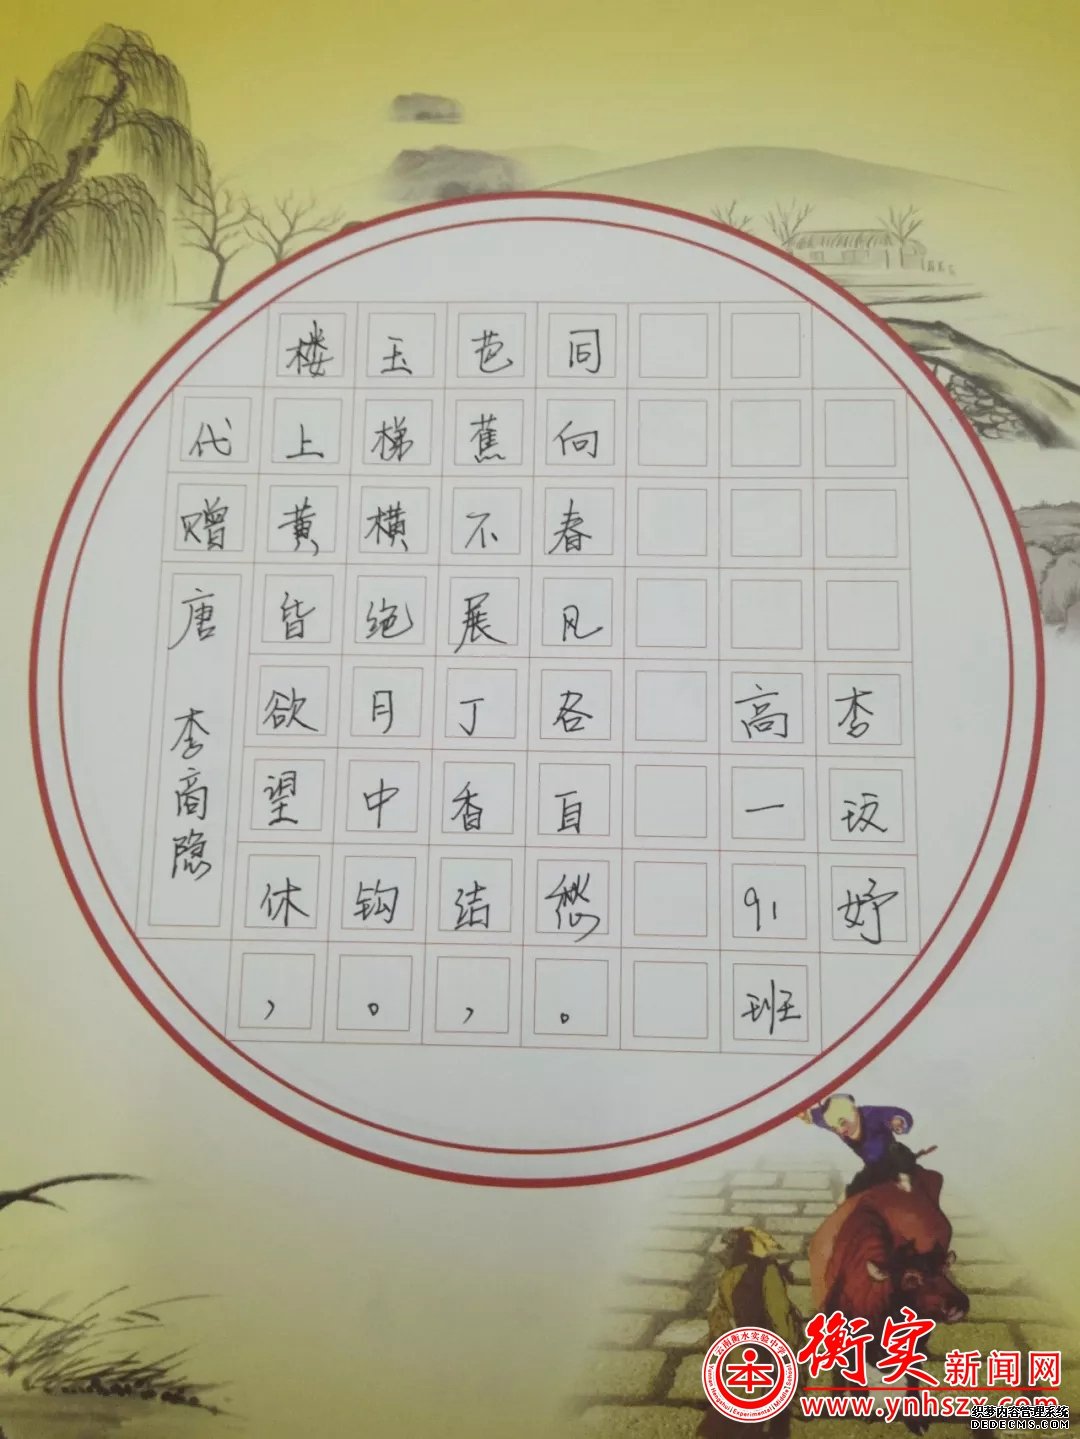 代赠
唐 李商隐
楼上黄昏欲望休，
玉梯横绝月中钩。
芭蕉不展丁香结，
同向春风各自愁。
高一91班
李玟妤
云南衡水实验中学
本
Yunnan Hengshui Experimental Middle School
衡实新闻网
www.ynhszx.com
织梦内容管理系统
DEDECMS.COM